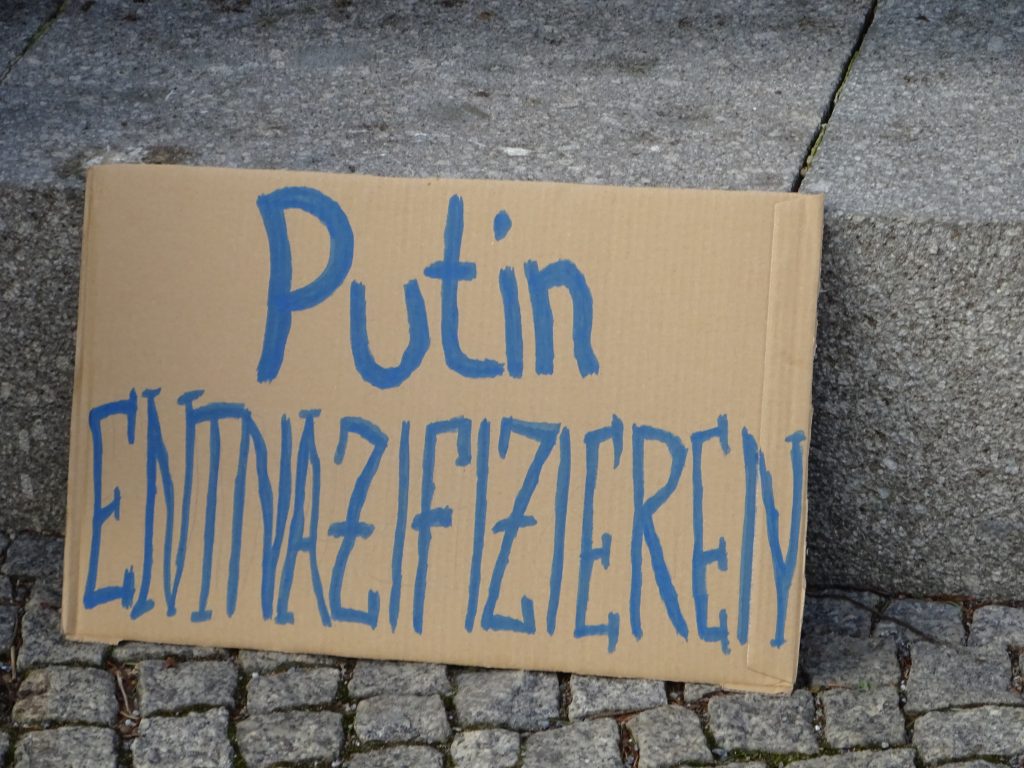 Putin
ENTNAZIFIZIEREN